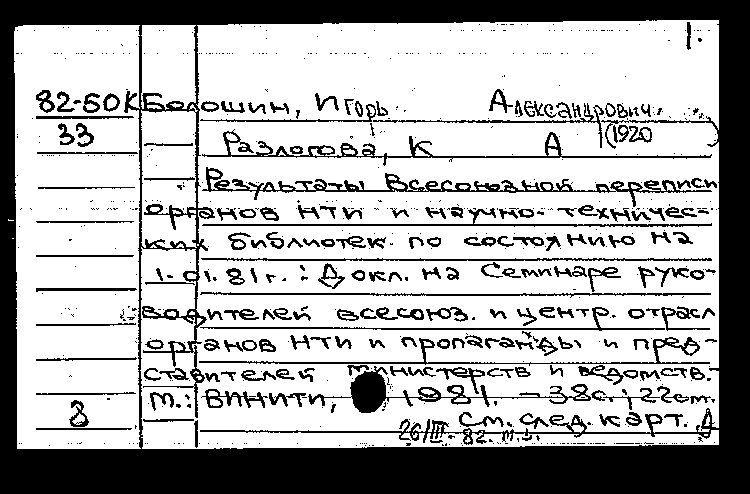 1.
82-50К Белошин, Игорь Александрович
33 (1920
Разлогова, К А
Результаты Всесоюзной переписи
органов НТИ и научно-техничес-
ких библиотек по состоянию на
1.01.81г.: Докл. на Семинаре руко-
водителей всесоюз. и центр. отрасл
органов НТИ и пропаганды и пред-
ставителей министерств и ведомств.-
М.: ВИНИТИ, 1981. - 38с.; 22см.
8 см. след. карт. Д
26/III-82.